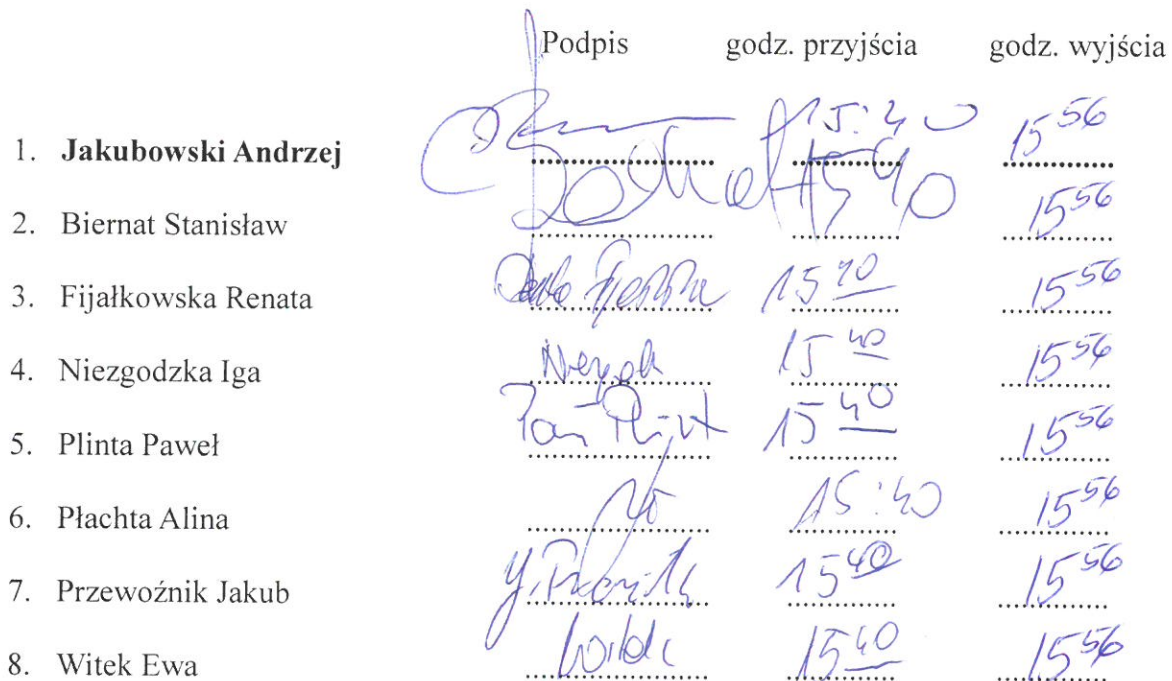 Podpis godz. przyjścia godz. wyjścia
1. Jakubowski Andrzej 15:40 15 56
2. Biernat Stanisław 15 40 15 56
3. Fijałkowska Renata 15 40 15 56
4. Niezgodzka Iga 15 40 15 56
5. Plinta Paweł 15 40 15 56
6. Płachta Alina 15:40 15 56
7. Przewoźnik Jakub 15 40 15 56
8. Witek Ewa 15 40 15 56